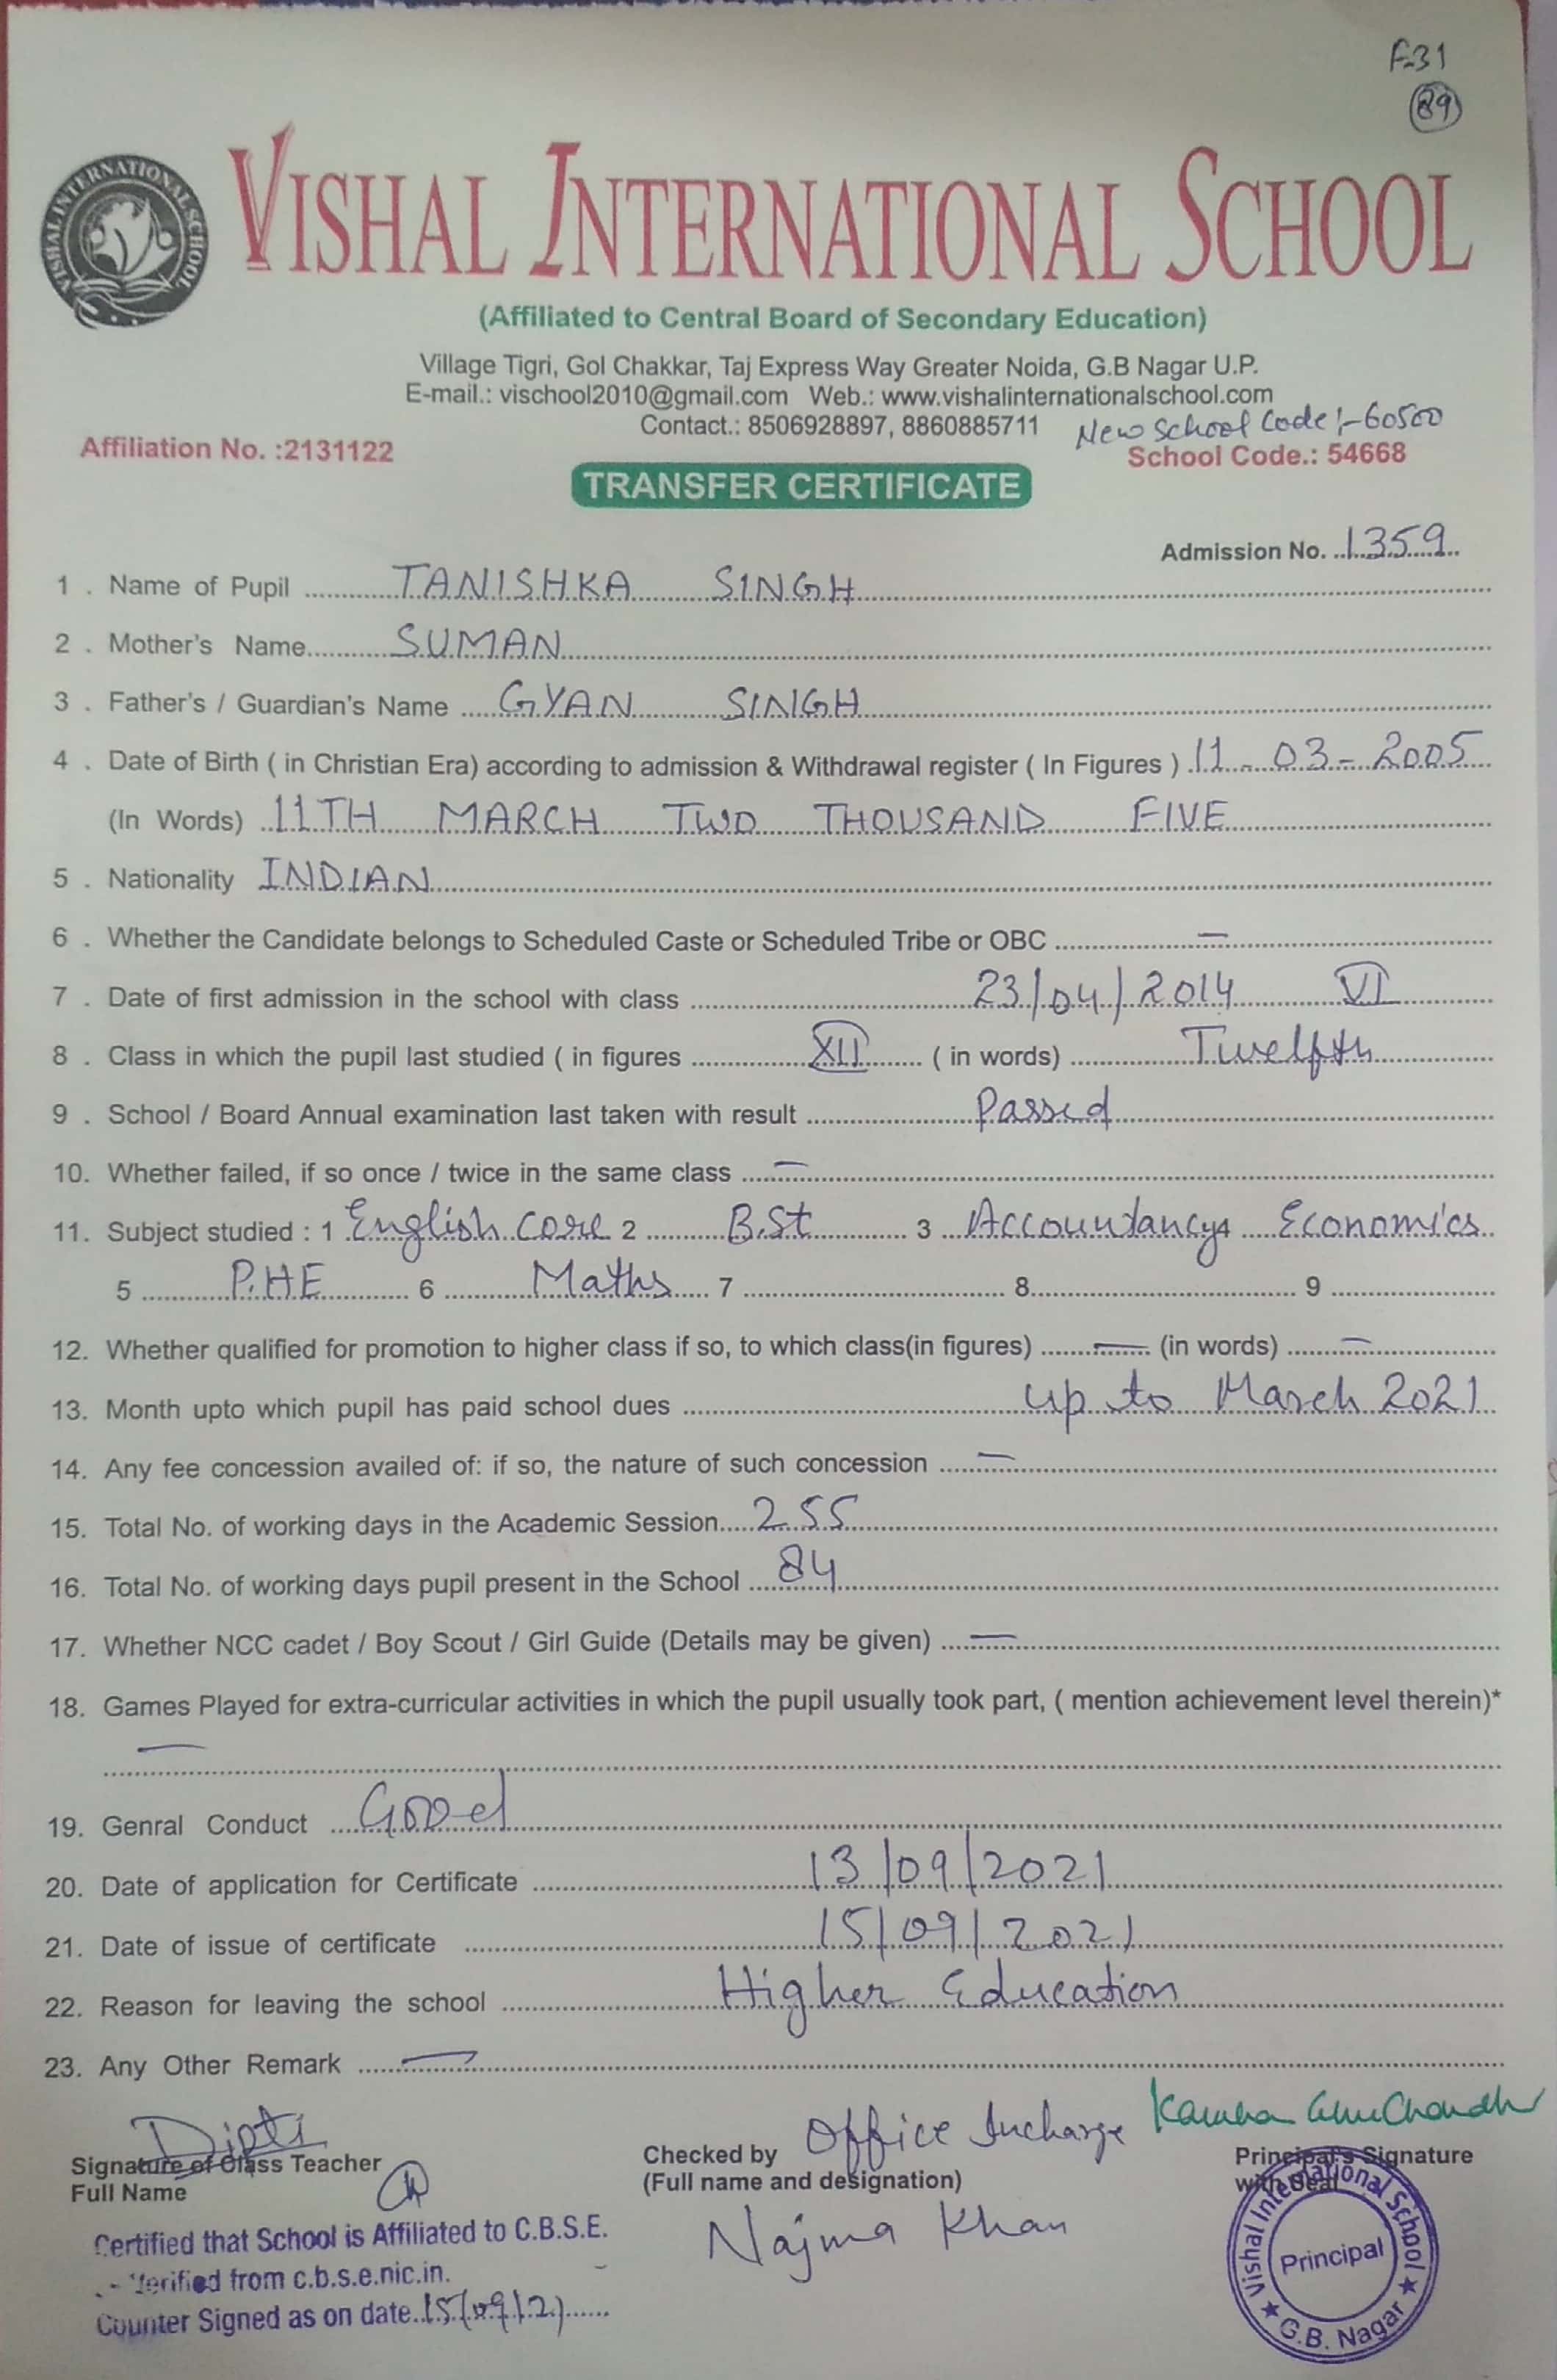 F-31
89
VISHAL INTERNATIONAL SCHOOL
VISHAL INTERNATIONAL SCHOOL
(Affiliated to Central Board of Secondary Education)
Village Tigri, Gol Chakkar, Taj Express Way Greater Noida, G.B Nagar U.P.
E-mail.: vischool2010@gmail.com Web.: www.vishalinternationalschool.com
Contact.: 8506928897, 8860885711 New School Code :- 60500
Affiliation No. :2131122 School Code.: 54668
TRANSFER CERTIFICATE
Admission No. 1359
1 . Name of Pupil TANISHKA SINGH
2 . Mother's Name SUMAN
3 . Father's / Guardian's Name GYAN SINGH
4 . Date of Birth ( in Christian Era) according to admission & Withdrawal register ( In Figures ) 11-03-2005
(In Words) 11TH MARCH TWO THOUSAND FIVE
5 . Nationality INDIAN
6 . Whether the Candidate belongs to Scheduled Caste or Scheduled Tribe or OBC —
7 . Date of first admission in the school with class 23/04/2014 VI
8 . Class in which the pupil last studied ( in figures XII ( in words) Twelfth
9 . School / Board Annual examination last taken with result Passed
10. Whether failed, if so once / twice in the same class —
11. Subject studied : 1 English Core 2 B.St 3 Accountancy 4 Economics
5 P.HE 6 Maths 7 8 9
12. Whether qualified for promotion to higher class if so, to which class(in figures) — (in words) —
13. Month upto which pupil has paid school dues up to March 2021
14. Any fee concession availed of: if so, the nature of such concession —
15. Total No. of working days in the Academic Session 255
16. Total No. of working days pupil present in the School 84
17. Whether NCC cadet / Boy Scout / Girl Guide (Details may be given) —
18. Games Played for extra-curricular activities in which the pupil usually took part, ( mention achievement level therein)*
—
19. Genral Conduct Good
20. Date of application for Certificate 13/09/2021
21. Date of issue of certificate 15/09/2021
22. Reason for leaving the school Higher Education
23. Any Other Remark —
Dipti Office Incharge
Signature of Class Teacher Checked by Principal's Signature
Full Name (Full name and designation) with Seal
Najma Khan
Certified that School is Affiliated to C.B.S.E.
Verified from c.b.s.e.nic.in.
Counter Signed as on date 15/09/21
Vishal International School
Principal
★ G.B. Nagar ★